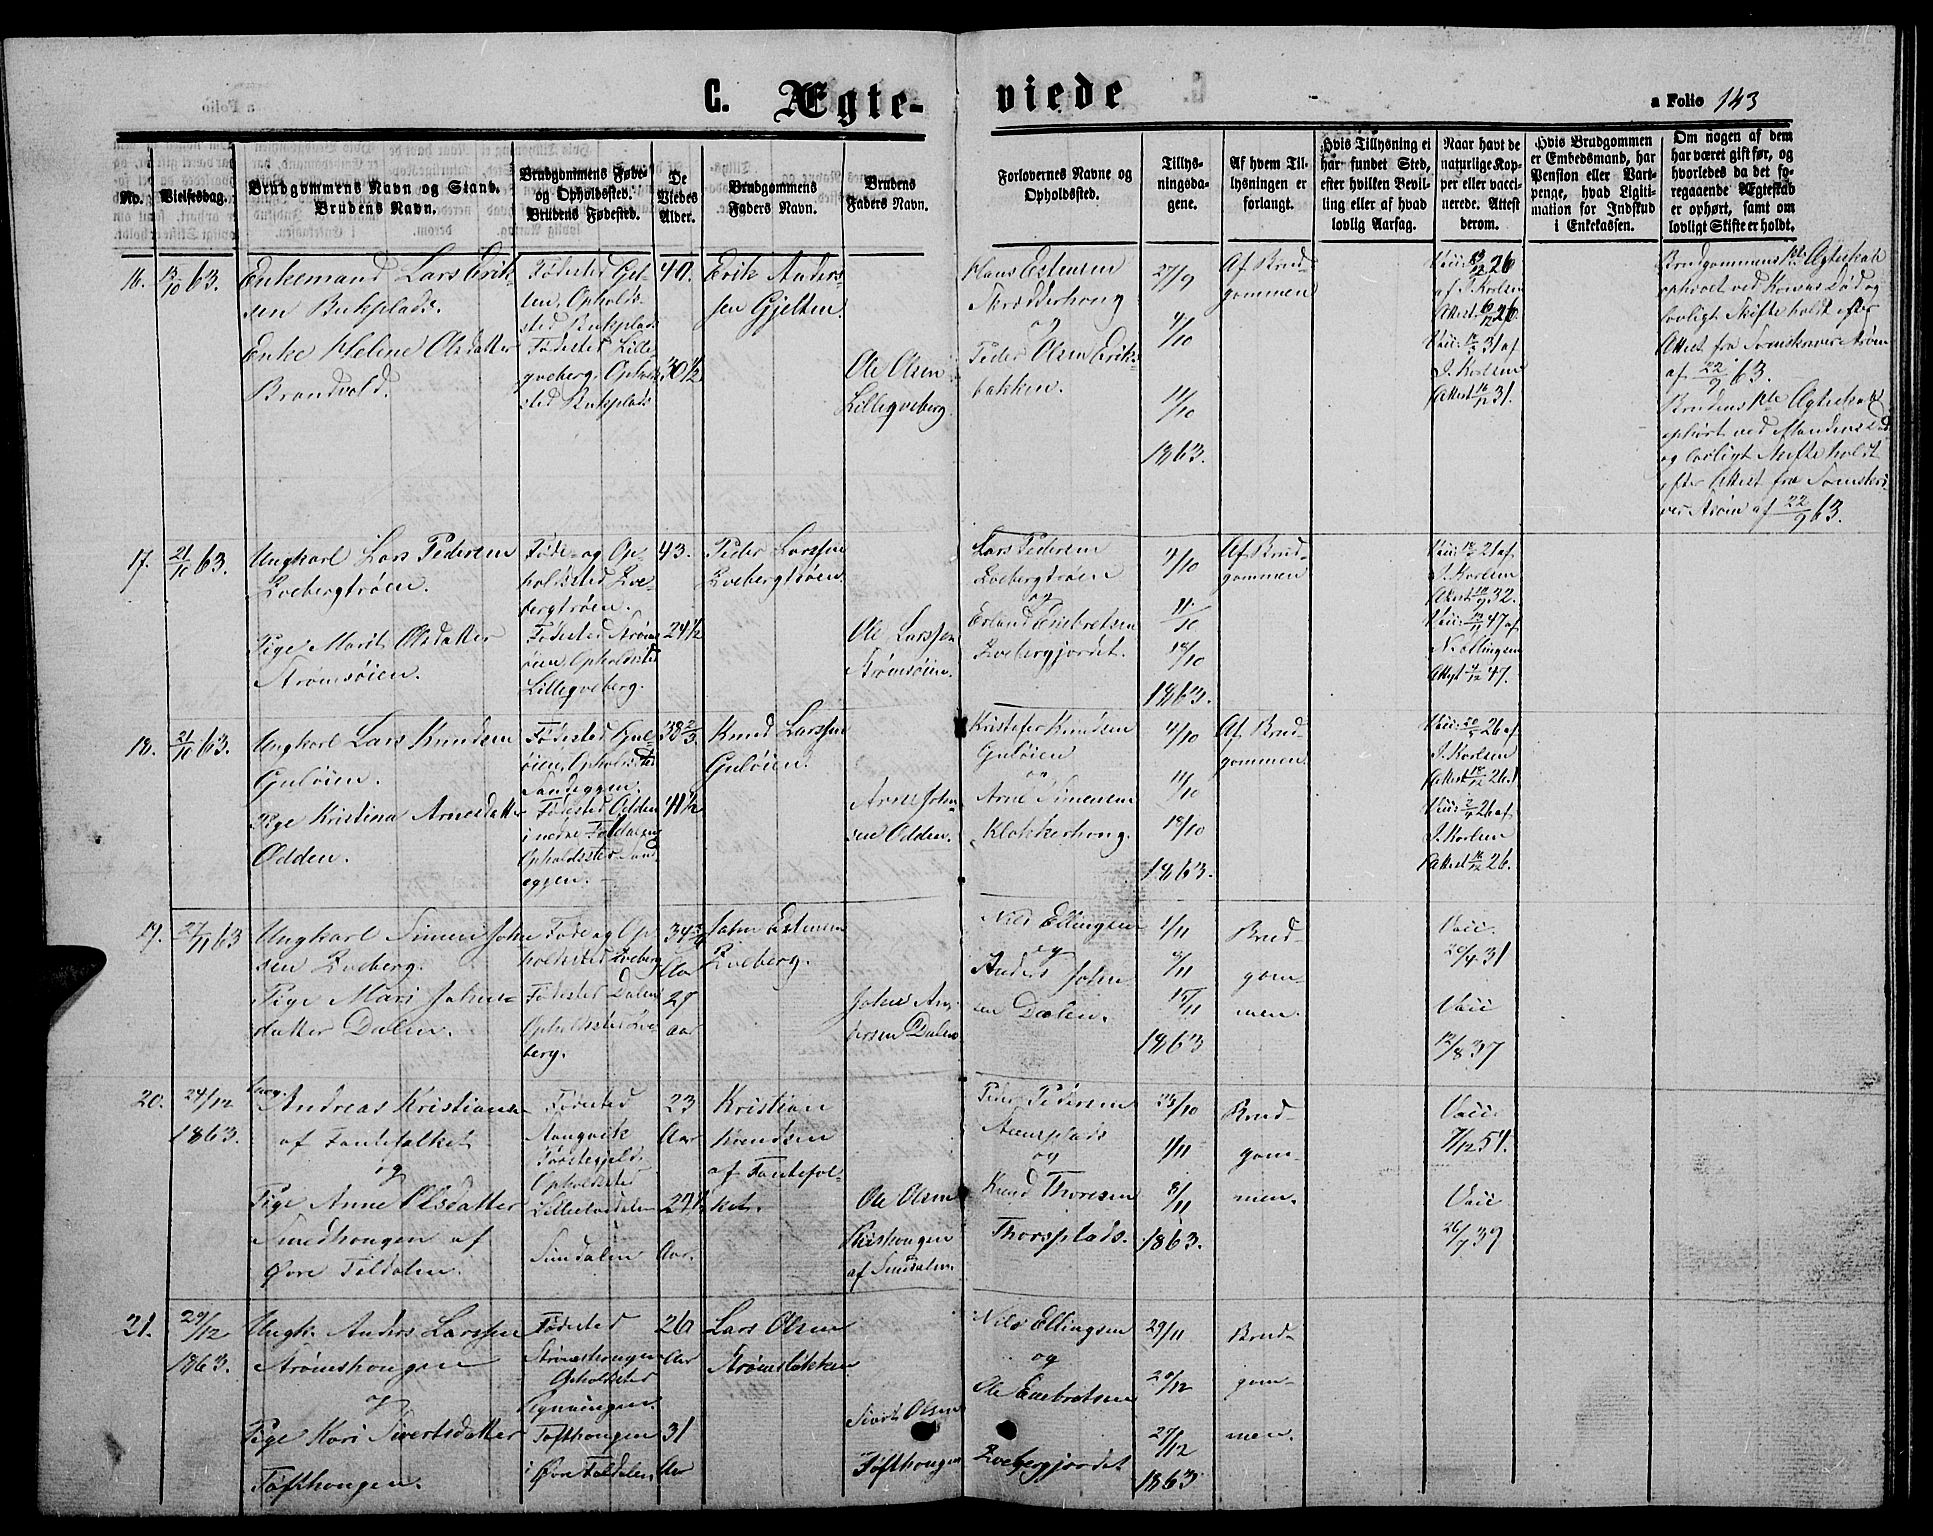 C. Ægte-
viede
a Folio 143
No.
Vielsesdag.
Brudgommens Navn og Stand.
Brudens Navn.
Brudgommens Føde-
og Opholdssted.
Brudens Fødested.
De
Viedes
Alder.
Brudgommens
Faders Navn.
Brudens
Faders Navn.
Forlovernes Navne og
Opholdssted.
Tillys-
ningsda-
gene.
Af hvem Til-
lysningen er
forlangt.
Hvis Tillysning ei
har fundet Sted,
efter hvilken Bevil-
ling eller af hvad
lovlig Aarsag.
Naar havt de
naturlige Kop-
per eller vacci-
nerede. Attest
derom.
Hvis Brudgommen
er Embedsmand, har
Pension eller Vart-
penge, hvad Ligiti-
mation for Indskud
i Enkekassen.
Om nogen af dem
har været gift før, og
hvorledes da det fo-
regaaende Ægteskab
er ophørt, samt om
lovligt Skifte er holdt.
16.
63.
Enkemand Lars Erik-
sen Bukplads.
Enke Helene Olsdatter
Brandvold.
Fødested Gjel-
ten. Opholds-
sted Bukplads
Fødested Lille-
qveberg. Ophold-
sted Bukplads
40.
30½
Erik Anders-
sen Gjelten.
Ole Olsen
Lilleqveberg.
Hans Estensen
og
Peder Olsen Eriks-
bakken.
27/9
4/10
11/10
1863.
Af Brud-
gommen
26
af J. Korsen
Attest 26
31 af
J. Korsen
Attest 31.
Brudgommens Ægteskab
ophævet ved Konens Død og
lovligt Skifte holdt efter
Attest fra
af 22/9 63.
Brudens Ægteskab
ophørt ved Mandens Død
og lovligt Skifte holdt
efter Attest fra
af 22/9 63.
17.
21/11 63.
Ungkarl Lars Pedersen
Qvebergtrøen.
Pige Marit Olsdatter
Strømsøien.
Føde- og Op-
holdssted Qve-
bergtrøen.
Fødested Strøms-
øien. Opholdssted
Lilleqveberg.
43.
24½
Peder Larssen
Qvebergtrøen.
Ole Larssen
Strømsøien.
Lars Pedersen
Qvebergtrøen
og
Erland Enebretsen
Qvebergjordet.
4/10
11/10
18/10
1863.
Af Brud-
gommen
21 af
J. Korsen
Attest 32.
47 af
N. Ellingsen
Attest 47.
18.
21/11 63.
Ungkarl Lars Knudsen
Guløien.
Pige Kristina Arnesdatter
Odden.
Fødested Gul-
øien. Opholdssted
Sandeggen.
Fødested Odden
i nedre Foldalen
Opholdssted San-
eggen.
38⅔
41½
Knud Larssen
Guløien.
Arne John-
sen Odden.
Kristofer Knudsen
Guløien
og
Arne Simensen
Klokkerhoug.
4/10
11/10
18/10
1863.
Af Brud-
gommen.
26 af
J. Korsen
Attest 26.
26 af
J. Korsen
Attest 26.
19.
27/11 63
Ungkarl Simen John-
sen Qveberg.
Pige Mari Johns-
datter Dalen.
Føde og Op-
holdssted Qveberg
Fødested Dalen
Opholdssted Qve-
berg.
34¾
Aar
27
aar
John Estensen
Qveberg.
John An-
dersen Dalen
Nils Ellingsen
og
Anders John-
sen Dalen.
1/11
8/11
15/11
1863
Brud-
gom-
men.
Vacc.
20/4 31
Vacc
12/8 37
20.
24/12
1863.
Andreas Kristiansen
af Fantefolket
og
Pige Anne Olsdatter
Smedhougen af
Øvre Foldalen.
Fødested
Opholdssted
Lilleelvedalen
Sundalen
23
Aar
Aar.
Kristian
Knudsen
af Fantefol-
ket.
Ole Olsen
af Sundalen.
Peder Pedersen
og
Knud Thoresen
Thorsplads.
25/10
1/11
8/11
1863.
Brud-
gom-
men.
Vacc.
7/12 54.
Vacc
26/7 39
21.
29/12
1863.
Ungk. Anders Larssen
Strømshougen
og
Pige Kari Sivertsdatter
Tofthougen.
Fødested
Strømshougen
Opholdssted
Tofthougen
i Øvre Foldalen
26
Aar
31
Aar
Lars Olsen
Strømsløkken
Sivert Olsen
Tofthougen
Nils Ellingsen
og
Ole Enebretsen
Qvebergjordet
29/11
20/12
27/12
1863
Brud-
gom-
men.